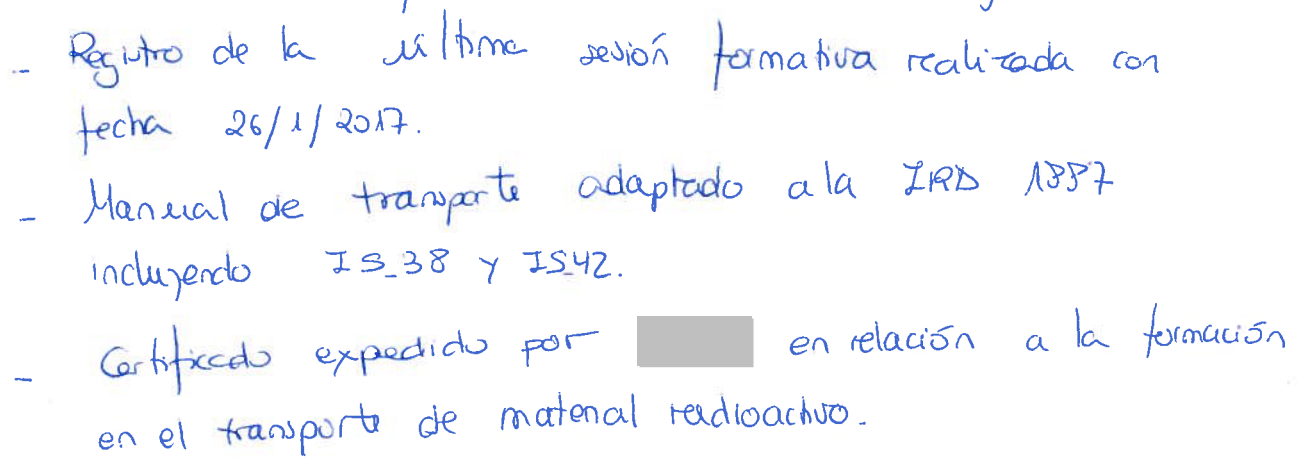 - Registro de la última sesión formativa realizada con
fecha 26/1/2017.
- Manual de transporte adaptado a la IRD 1887
incluyendo IS_38 y IS42.
- Certificado expedido por en relación a la formación
en el transporte de material radioactivo.